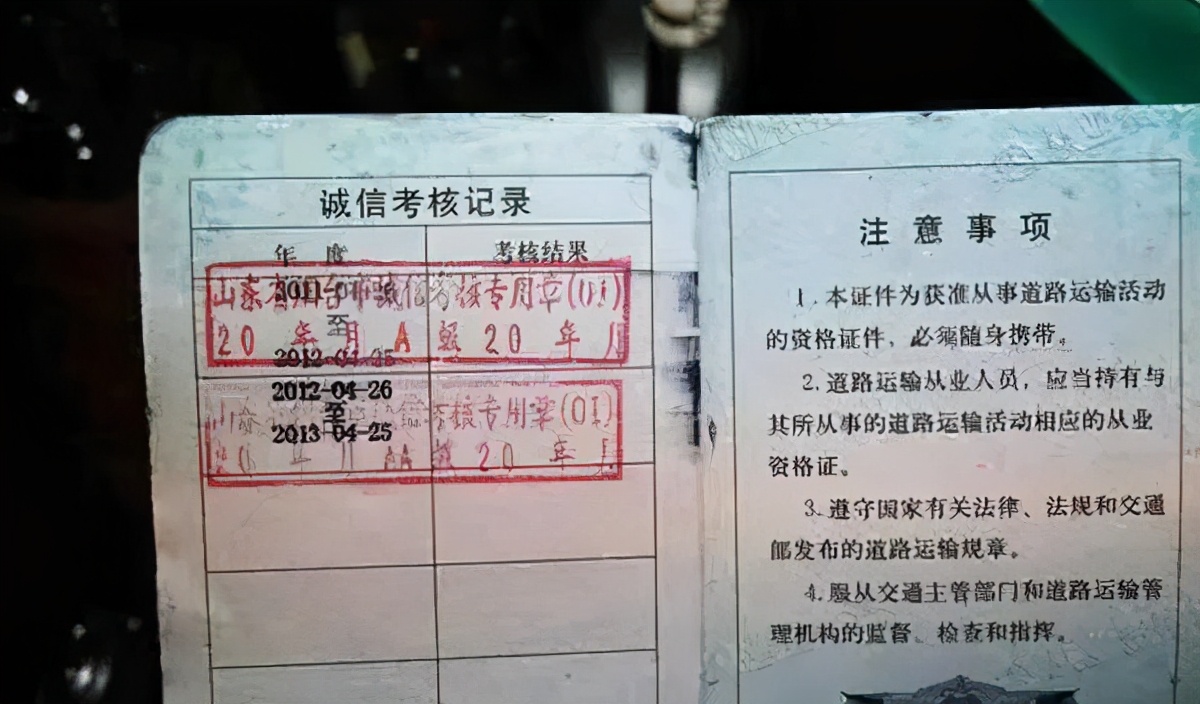 诚信考核记录
年 度 考核结果
考核专用章(01)
20 年 月 A 20 年 月
至
2012-04-25
2012-04-26
至
2013-04-25
核专用章(01)
20 年
注意事项
1.本证件为获准从事道路运输活动
的资格证件，必须随身携带。
2.道路运输从业人员，应当持有与
其所从事的道路运输活动相应的从业
资格证。
3.遵守国家有关法律、法规和交通
部发布的道路运输规章。
4.服从交通主管部门和道路运输管
理机构的监督、检查和指挥。